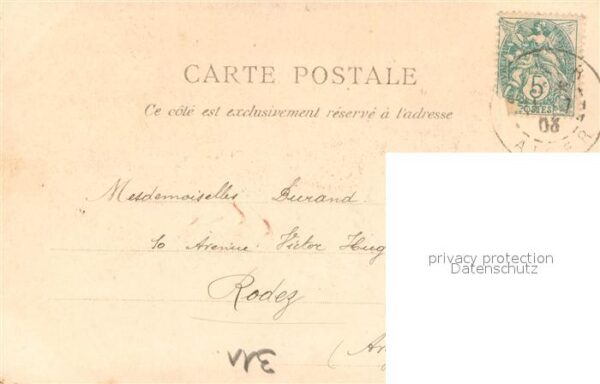 CARTE POSTALE
Ce côté est exclusivement réservé à l'adresse
5
POSTES
03
ALGER
Mesdemoiselles Durand
10 Avenue Victor Hug
privacy protection
Datenschutz
Rodez
(A